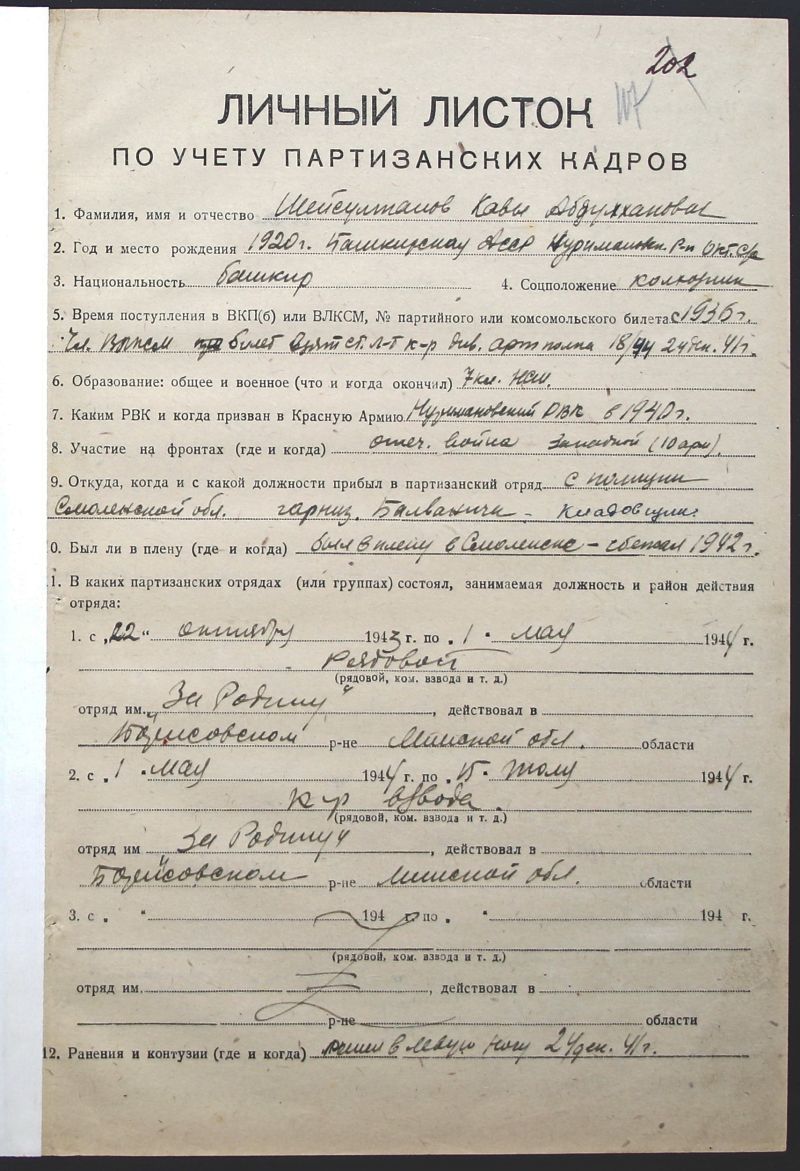 202
107
ЛИЧНЫЙ ЛИСТОК
ПО УЧЕТУ ПАРТИЗАНСКИХ КАДРОВ
1. Фамилия, имя и отчество Шейсултанов Кавы Абдулханович
2. Год и место рождения 1920 г. Башкирская Асср Нуримановск. р-н Окт. с/с
3. Национальность башкир 4. Соцположение колхозник
5. Время поступления в ВКП(б) или ВЛКСМ, № партийного или комсомольского билета с 1936 г.
Чл. ВЛКСМ билет взят ст. л-т к-р див. артполка 18/ 24 дек. 41 г.
6. Образование: общее и военное (что и когда окончил) 7 кл. НСШ.
7. Каким РВК и когда призван в Красную Армию Нуримановский РВК в 1940 г.
8. Участие на фронтах (где и когда) отеч. война Западной (10 арм).
9. Откуда, когда и с какой должности прибыл в партизанский отряд с полиции
Смоленской обл. гарниз. -
0. Был ли в плену (где и когда) был в плену в Смоленске – сбежал 1942 г.
1. В каких партизанских отрядах (или группах) состоял, занимаемая должность и район действия
отряда:
1. с „22“ октября 1943 г. по „1“ мая 1944 г.
Рядовой
(рядовой, ком. взвода и т. д.)
отряд им. „За Родину“, действовал в
Борисовском р-не Минской обл. области
2. с „1“ мая 1944 г. по „15“ июля 1944 г.
К-р взвода.
(рядовой, ком. взвода и т. д.)
отряд им За Родину“, действовал в
Борисовском р-не Минской обл. области
3. с „ “ 194 г. по „ “ 194 г.
(рядовой, ком. взвода и т. д.)
отряд им. , действовал в
р-не области
12. Ранения и контузии (где и когда) ранен в левую ногу 24 дек. 41 г.